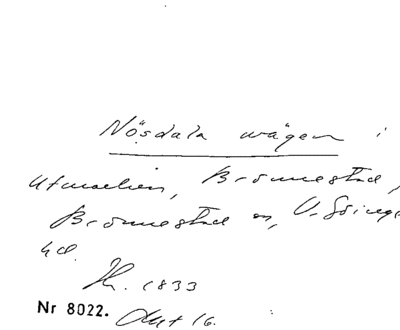 Nösdala vägen i
Utmarken, Brönnestad,
Brönnestad sn, V. Göinge
hd.
1833
Nr 8022. Akt 16.